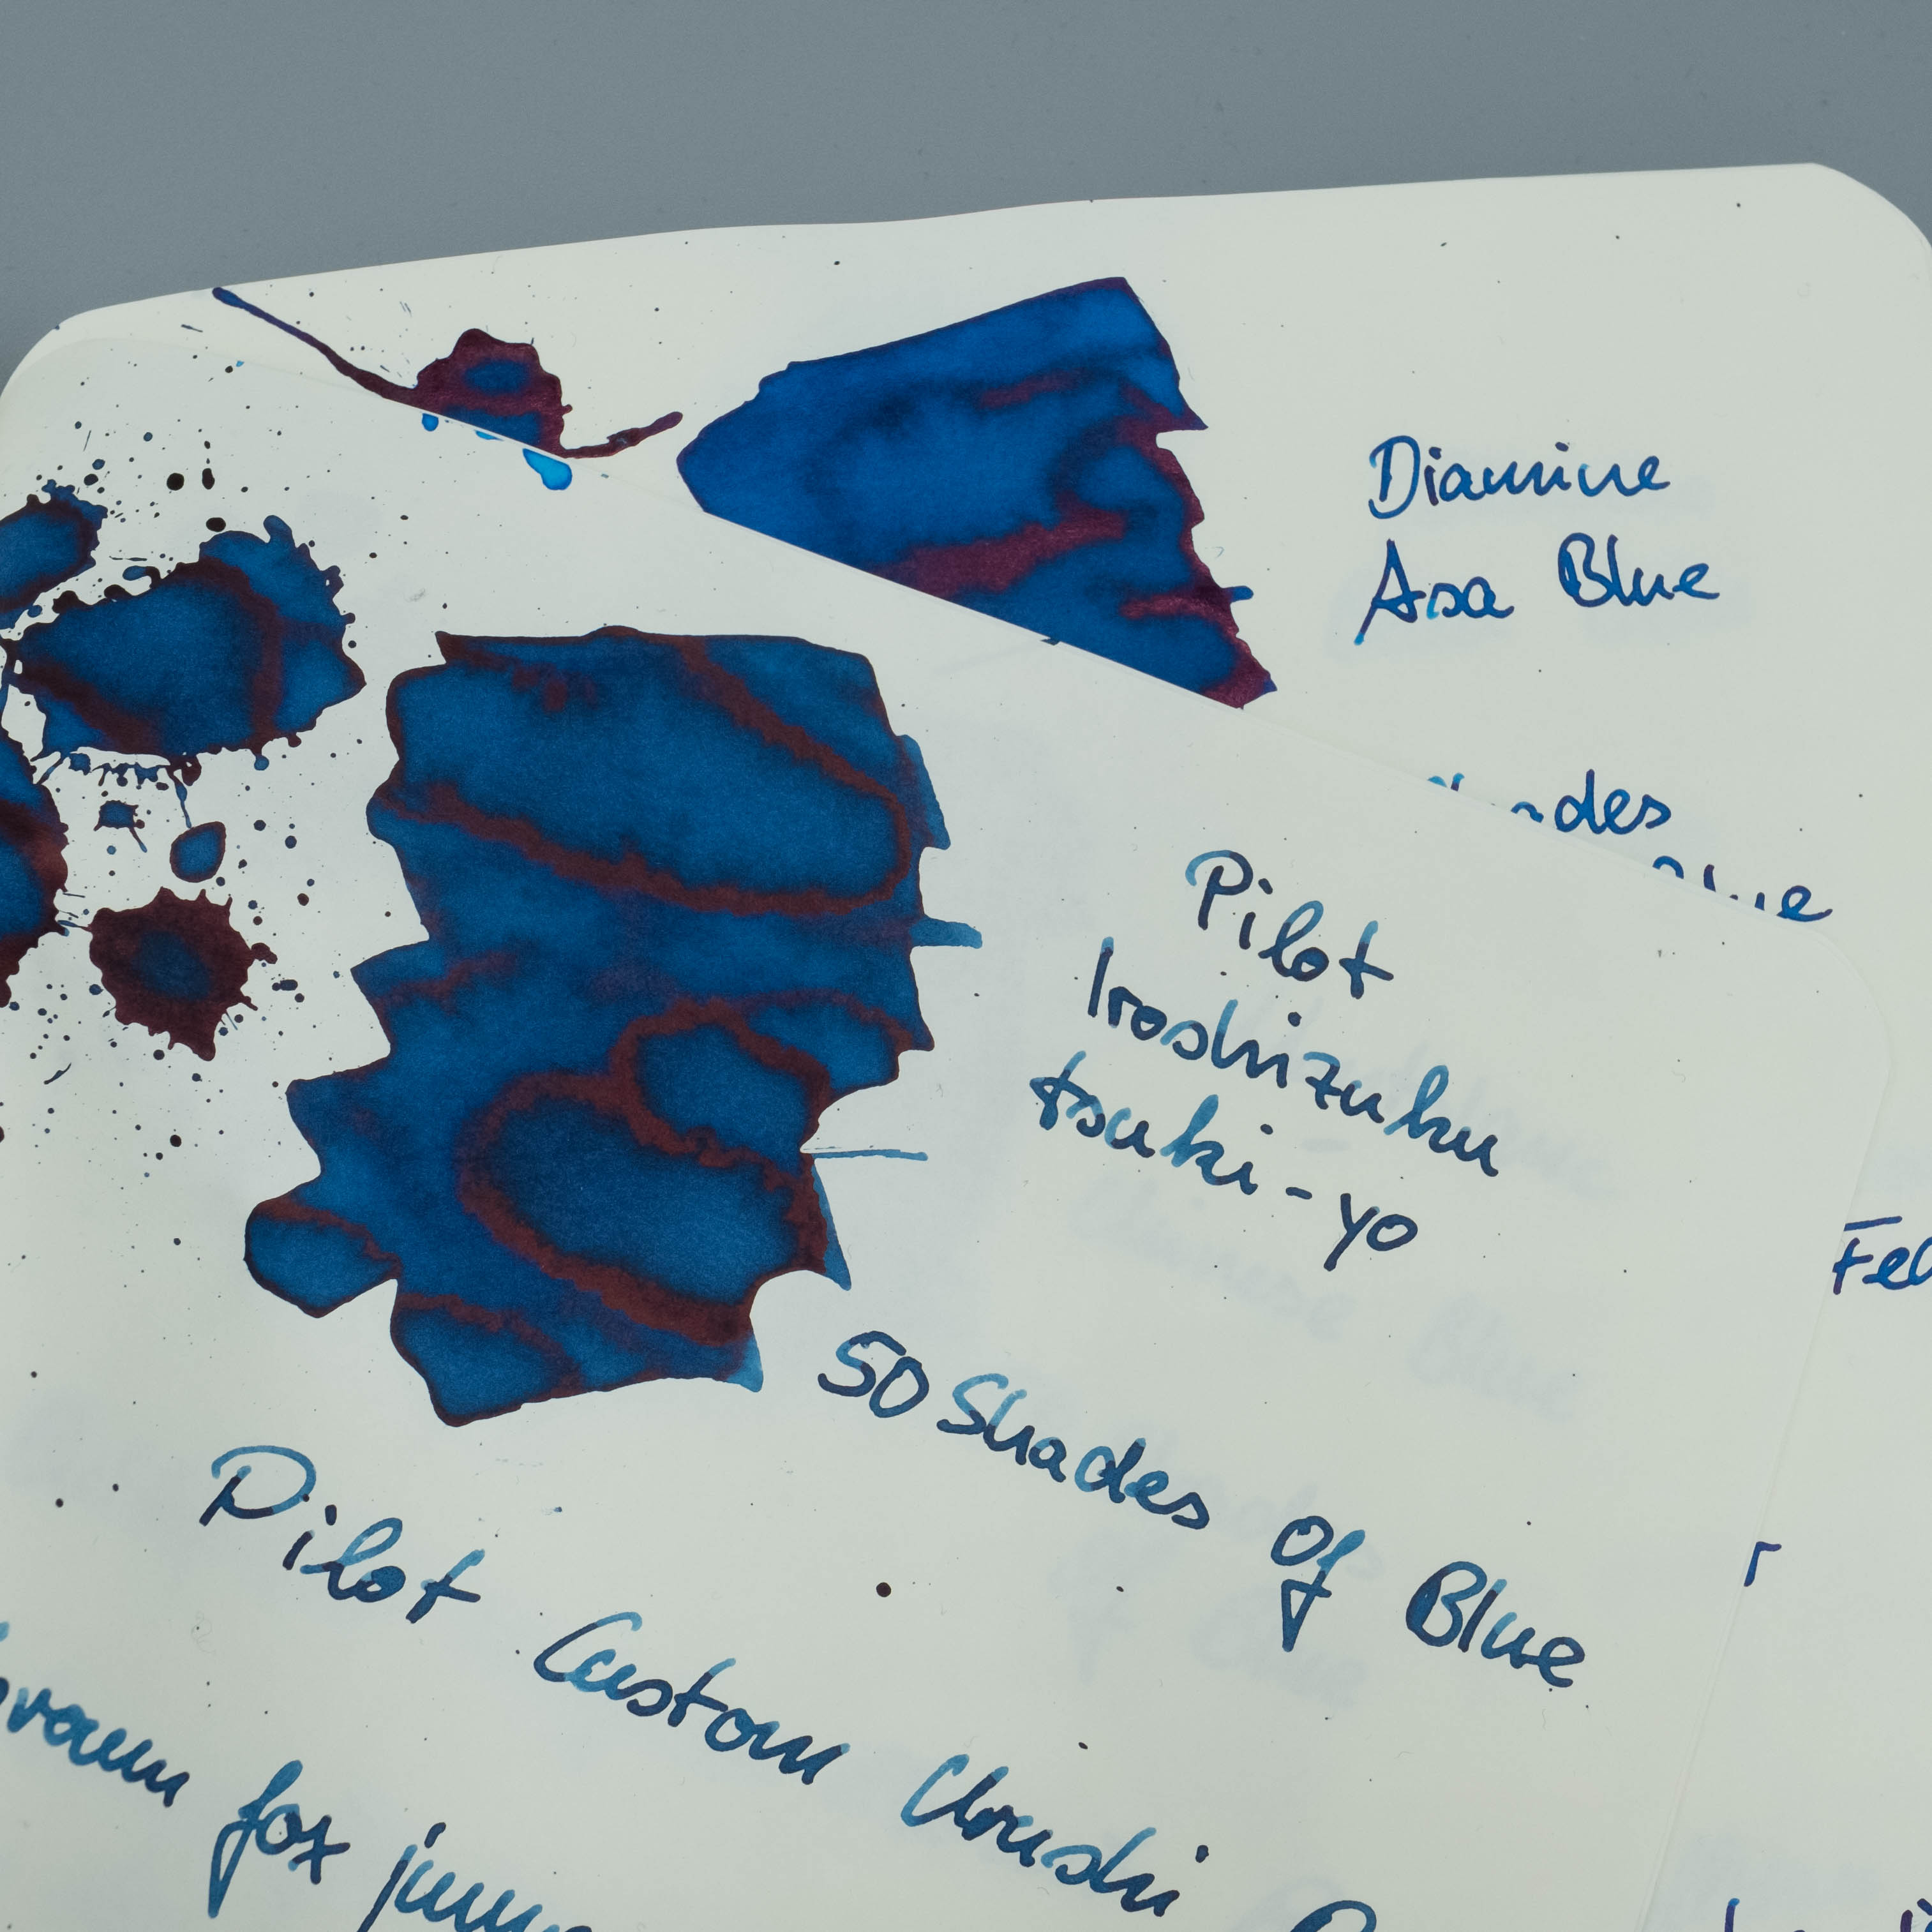 Diamine
Asa Blue
Pilot
Iroshizuku
tsuki-yo
50 Shades of Blue
Pilot Custom Urushi
fox